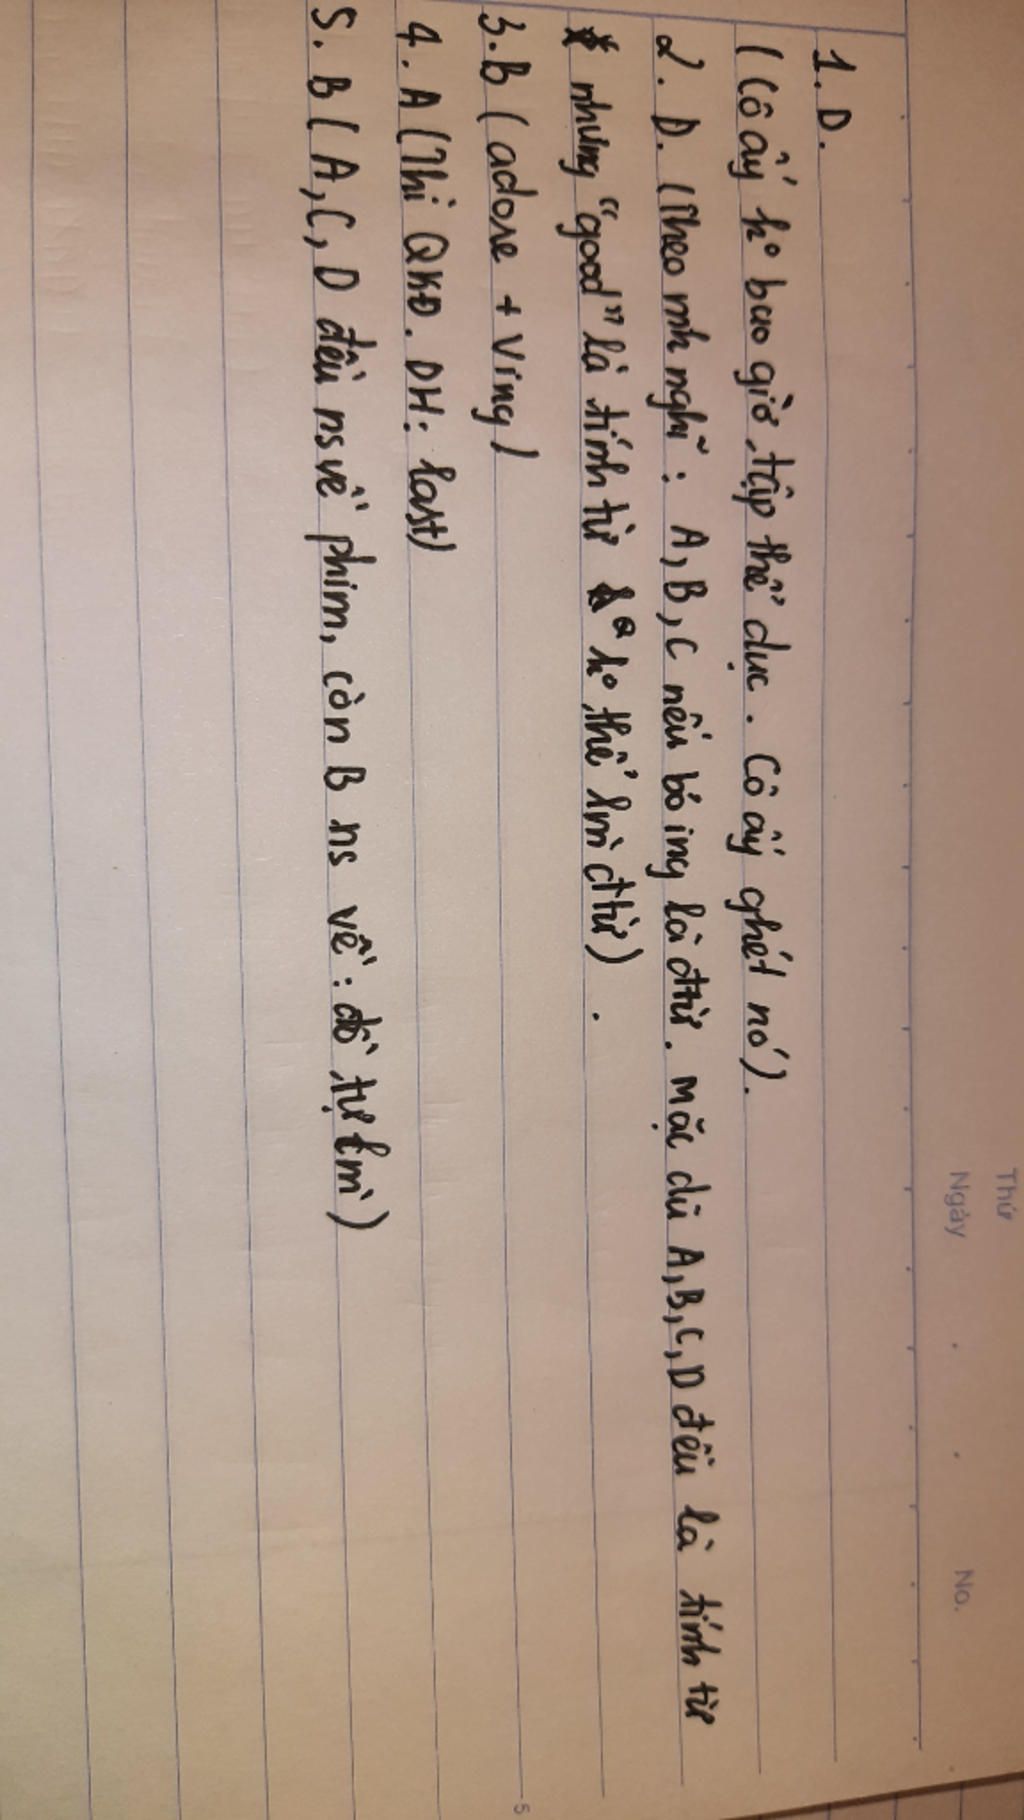 Thứ
Ngày . . No.
1. D.
(Cô ấy ko bao giờ tập thể dục. Cô ấy ghét nó).
2. D. (Theo mh nghĩ: A, B, C nếu bỏ ing là đtừ. mặc dù A, B, C, D đều là tính từ
nhưng "good" là tính từ ko thể lm đtừ).
3. B (adore + Ving)
4. A (Thì QKĐ. DH: last)
5. B (A, C, D đều ns về phim, còn B ns về: đồ tự lm)
5